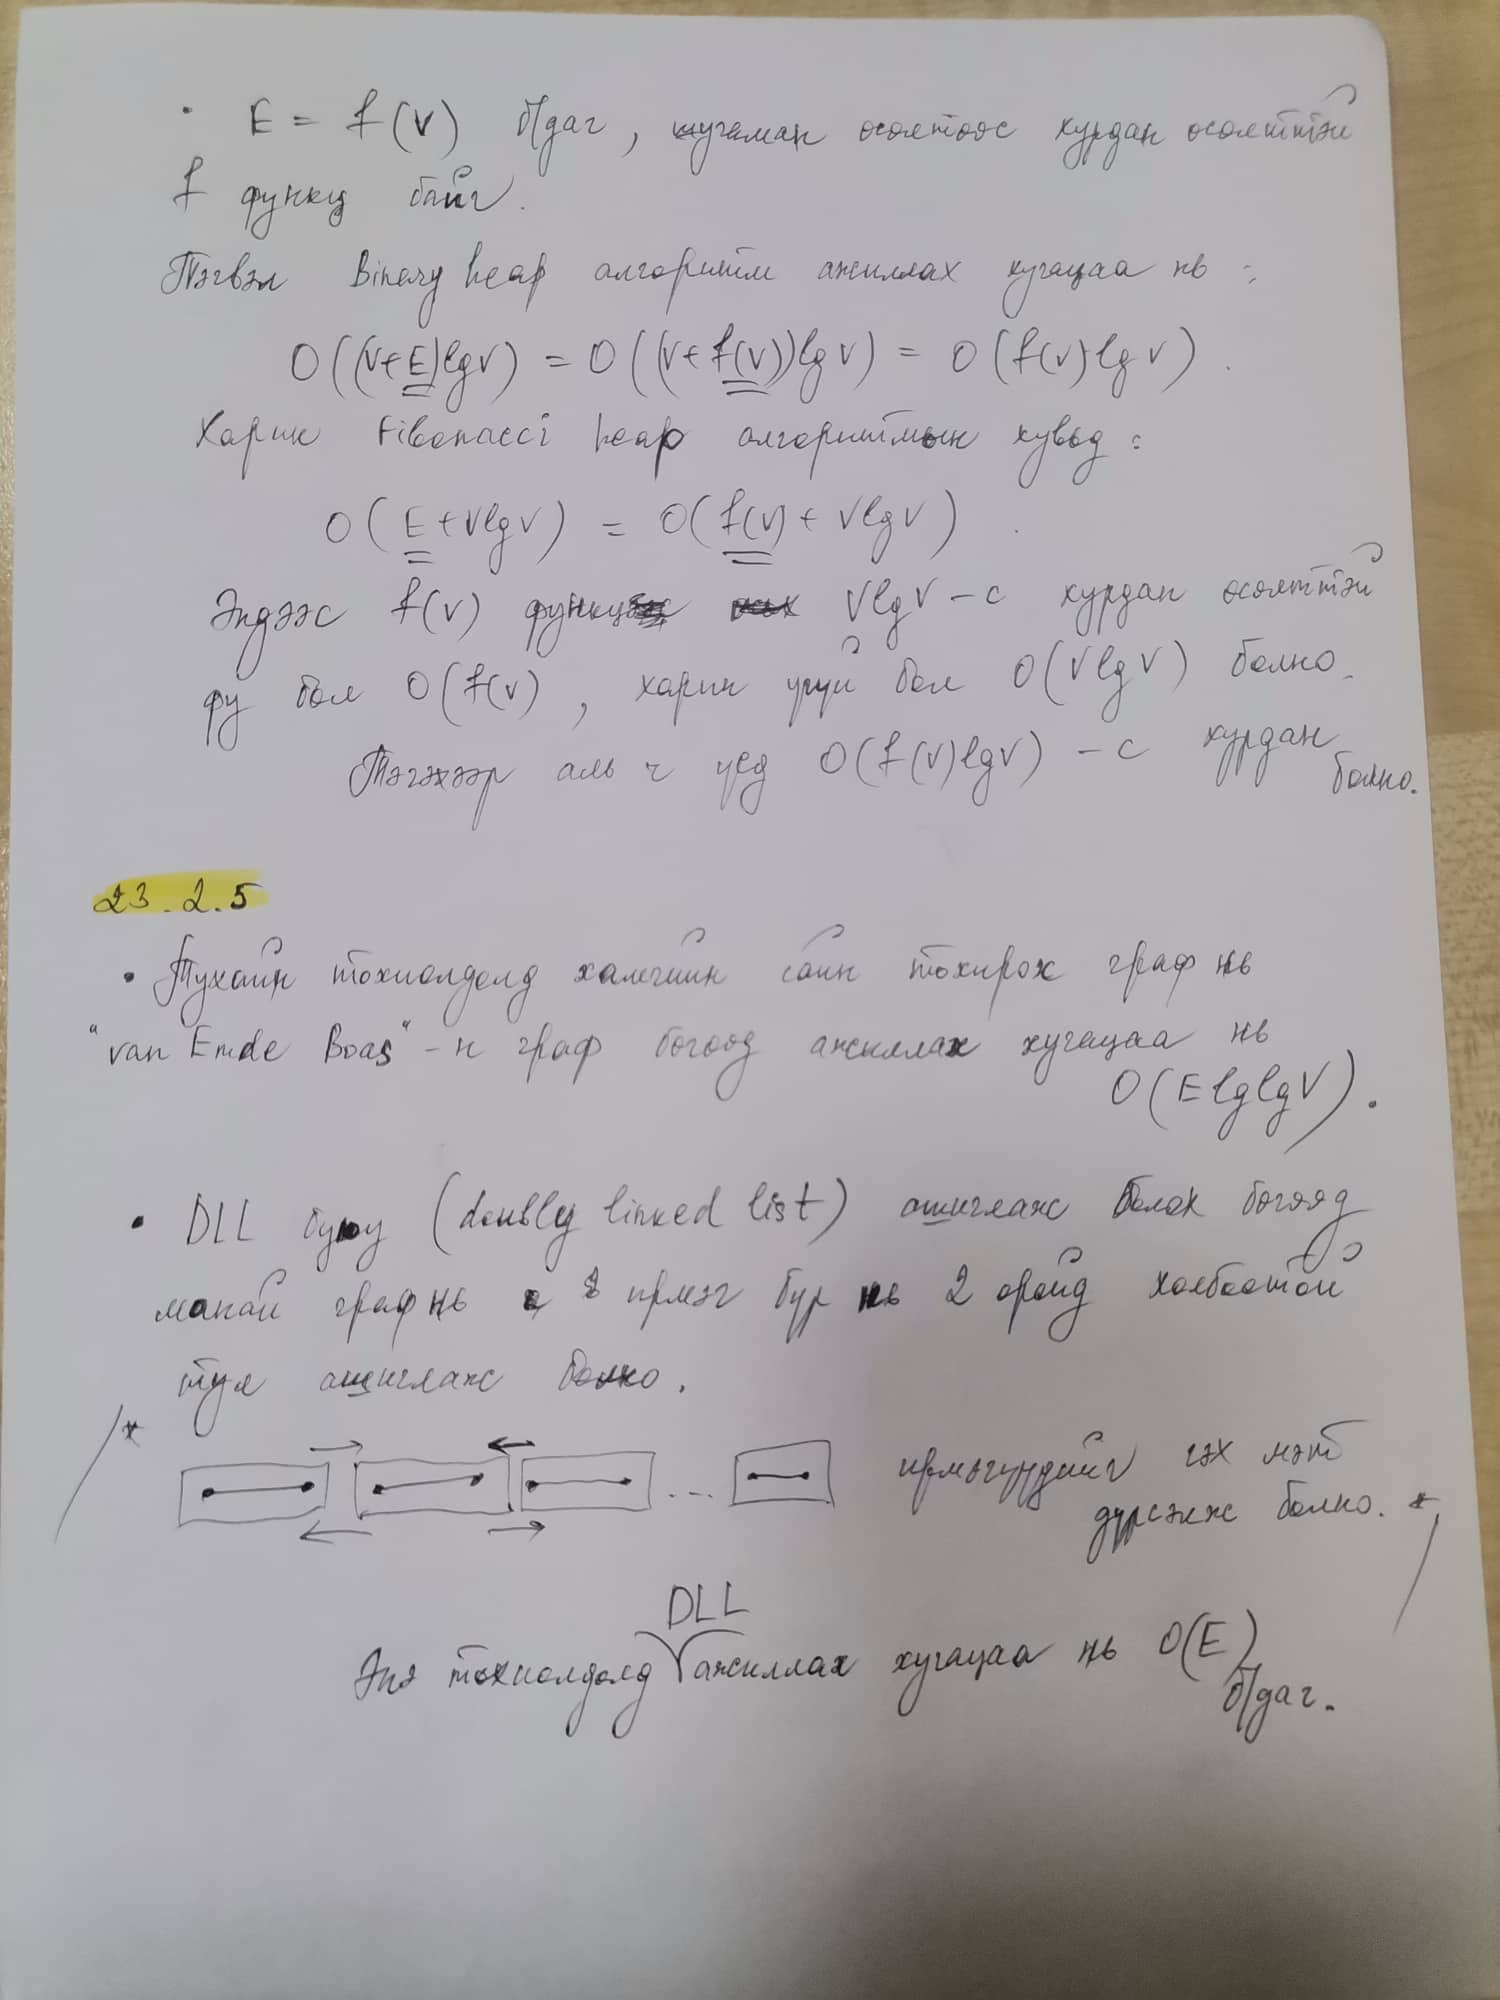 · E = f(V) б/даг, шугаман өсөлтөөс хурдан өсөлттэй
f функц байг.
Тэгвэл Binary heap алгоритм ажиллах хугацаа нь :
O((V+E)lgV) = O((V+f(V))lgV) = O(f(V)lgV).
Харин Fibonacci heap алгоритмын хувьд :
O(E+VlgV) = O(f(V)+VlgV)
Эндээс f(V) функц VlgV-с хурдан өсөлттэй
фу бол O(f(V), харин үгүй бол O(VlgV) болно.
Тэгэхээр аль ч үед O(f(V)lgV) -с хурдан
болно.
23.2.5
• Тухайн тохиолдолд хамгийн сайн тохирох граф нь
"van Emde Boas"-н граф бөгөөд ажиллах хугацаа нь
O(ElglgV).
• DLL буюу (doubly linked list) ашиглаж болох бөгөөд
манай граф нь ирмэг бүр нь 2 оройд холбоотой
тул ашиглаж болно.
/*
... ирмэгүүдийг гэх мэт
дүрсэлж болно. */
DLL
Энэ тохиолдолд ажиллах хугацаа нь O(E)
б/даг.